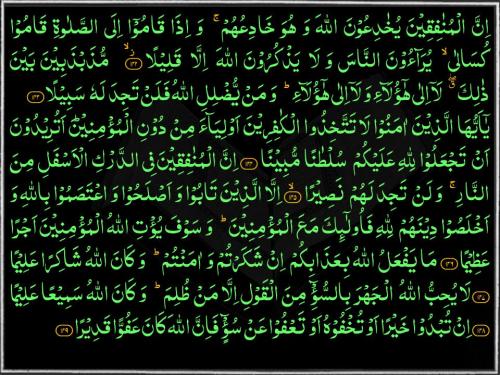 اِنَّ الْمُنٰفِقِيْنَ يُخٰدِعُوْنَ اللّٰهَ وَ هُوَ خَادِعُهُمْ ۚ وَ اِذَا قَامُوْۤا اِلَى الصَّلٰوةِ قَامُوْا
كُسَالٰى ۙ يُرَآءُوْنَ النَّاسَ وَ لَا يَذْكُرُوْنَ اللّٰهَ اِلَّا قَلِيْلًا ۙ﴿۱۴۲﴾ مُّذَبْذَبِيْنَ بَيْنَ
ذٰلِكَ ۖ لَاۤ اِلٰى هٰۤؤُلَآءِ وَ لَاۤ اِلٰى هٰۤؤُلَآءِ ؕ وَ مَنْ يُّضْلِلِ اللّٰهُ فَلَنْ تَجِدَ لَهٗ سَبِيْلًا ﴿۱۴۳﴾
يٰۤاَيُّهَا الَّذِيْنَ اٰمَنُوْا لَا تَتَّخِذُوا الْكٰفِرِيْنَ اَوْلِيَآءَ مِنْ دُوْنِ الْمُؤْمِنِيْنَ ؕ اَتُرِيْدُوْنَ
اَنْ تَجْعَلُوْا لِلّٰهِ عَلَيْكُمْ سُلْطٰنًا مُّبِيْنًا ﴿۱۴۴﴾ اِنَّ الْمُنٰفِقِيْنَ فِى الدَّرْكِ الْاَسْفَلِ مِنَ
النَّارِ ۚ وَ لَنْ تَجِدَ لَهُمْ نَصِيْرًا ۙ﴿۱۴۵﴾ اِلَّا الَّذِيْنَ تَابُوْا وَ اَصْلَحُوْا وَ اعْتَصَمُوْا بِاللّٰهِ وَ
اَخْلَصُوْا دِيْنَهُمْ لِلّٰهِ فَاُولٰٓئِكَ مَعَ الْمُؤْمِنِيْنَ ؕ وَ سَوْفَ يُؤْتِ اللّٰهُ الْمُؤْمِنِيْنَ اَجْرًا
عَظِيْمًا ﴿۱۴۶﴾ مَا يَفْعَلُ اللّٰهُ بِعَذَابِكُمْ اِنْ شَكَرْتُمْ وَ اٰمَنْتُمْ ؕ وَ كَانَ اللّٰهُ شَاكِرًا عَلِيْمًا
﴿۱۴۷﴾ لَا يُحِبُّ اللّٰهُ الْجَهْرَ بِالسُّوْٓءِ مِنَ الْقَوْلِ اِلَّا مَنْ ظُلِمَ ؕ وَ كَانَ اللّٰهُ سَمِيْعًا عَلِيْمًا
﴿۱۴۸﴾ اِنْ تُبْدُوْا خَيْرًا اَوْ تُخْفُوْهُ اَوْ تَعْفُوْا عَنْ سُوْٓءٍ فَاِنَّ اللّٰهَ كَانَ عَفُوًّا قَدِيْرًا ﴿۱۴۹﴾